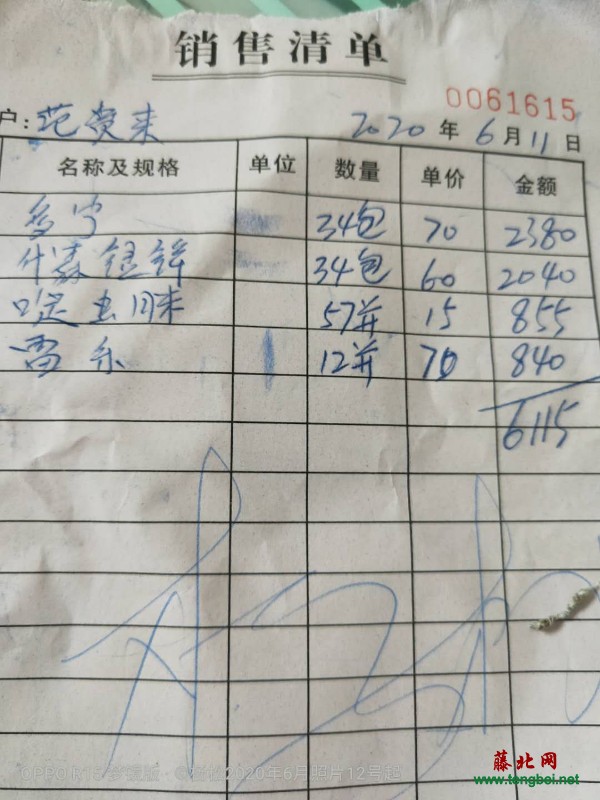 销售清单
0061615
户: 范 来 2020年6月11日
名称及规格 单位 数量 单价 金额
多宁 34包 70 2380
代森锰锌 34包 60 2040
啶虫脒 57并 15 855
雷多 12并 70 840
6115
OPPO R15 梦镜版 2020年6月 照片12号起
藤北网
www.tengbei.net